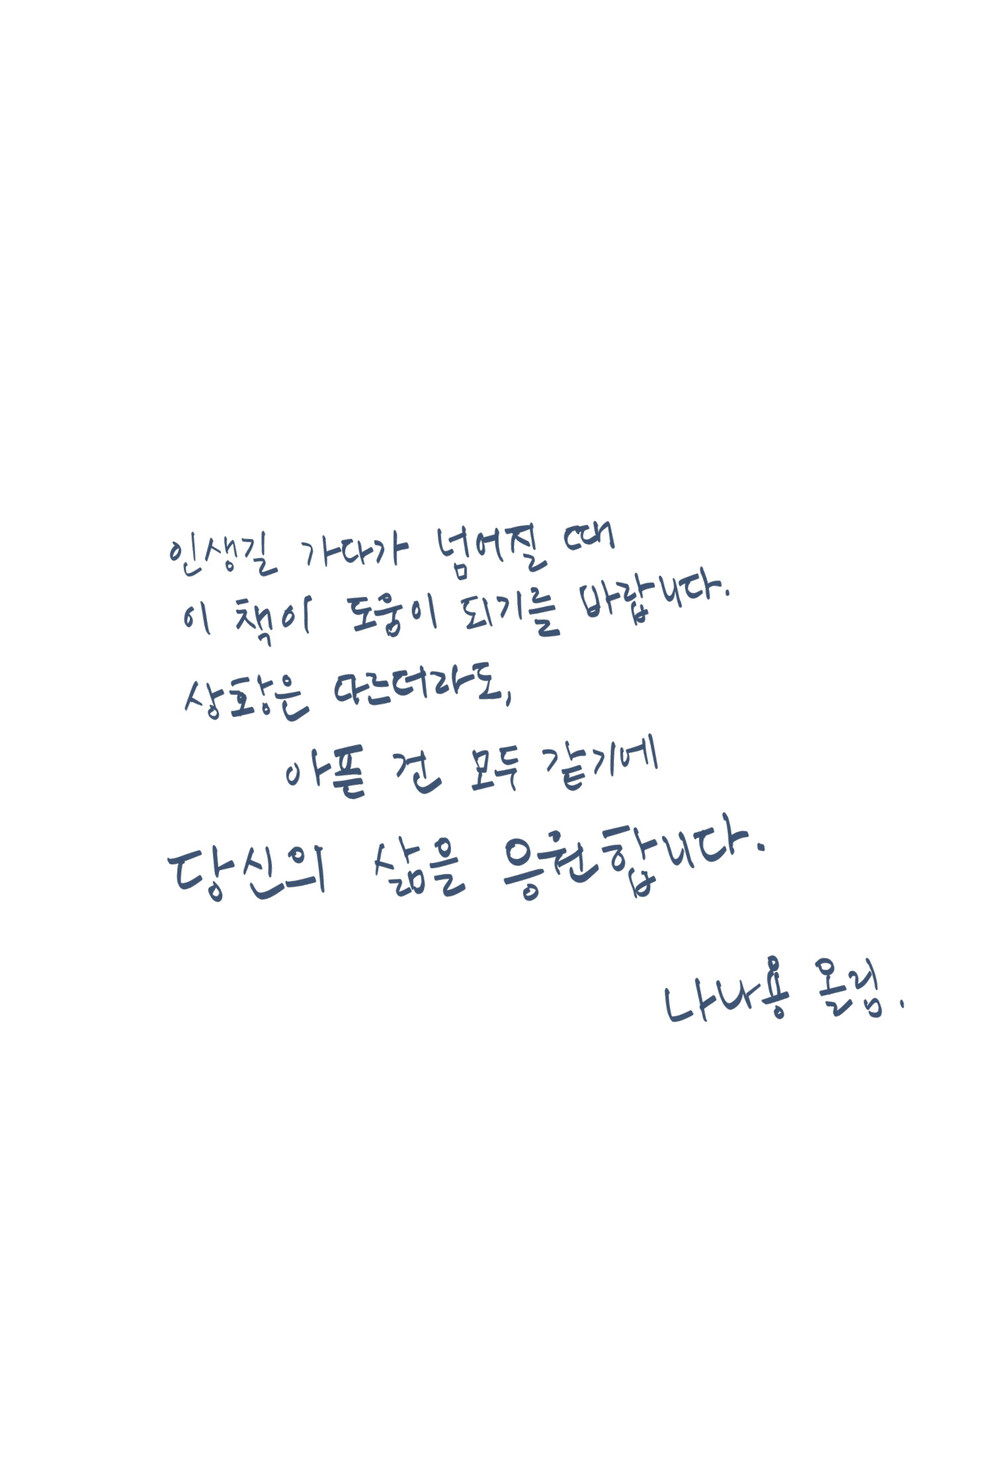 인생길 가다가 넘어질 때
이 책이 도움이 되기를 바랍니다.
상황은 다르더라도,
아픈 건 모두 같기에
당신의 삶을 응원합니다.
나나용 올림.